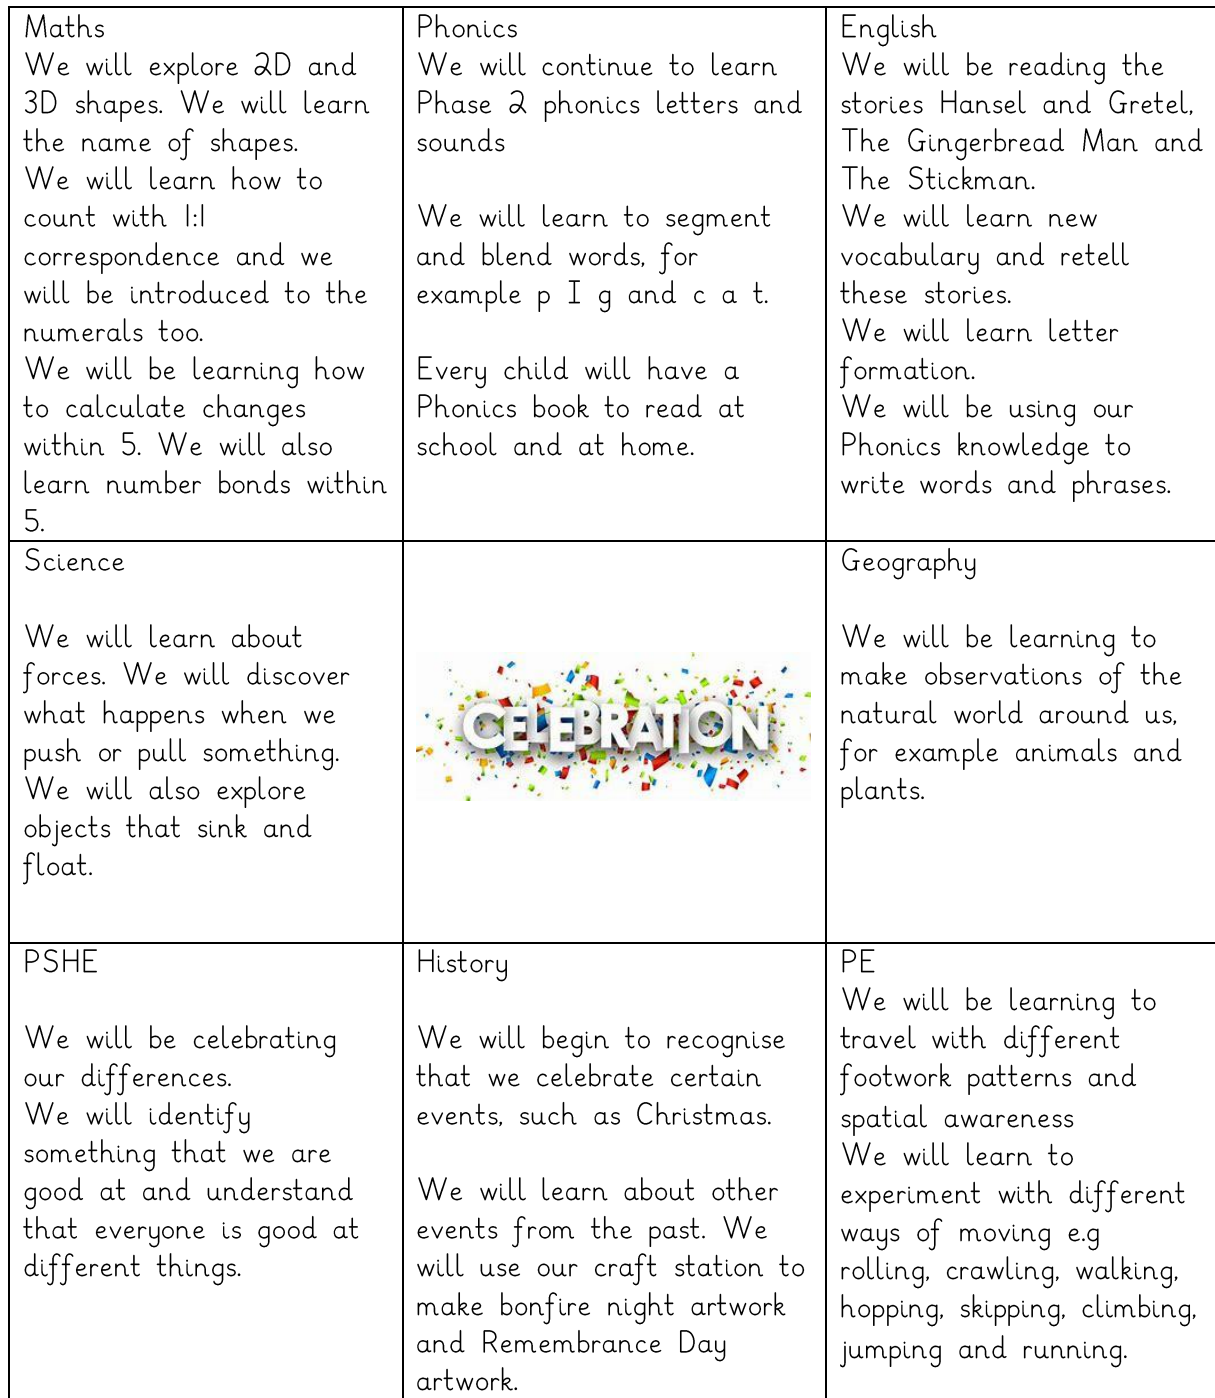 Maths
We will explore 2D and
3D shapes. We will learn
the name of shapes.
We will learn how to
count with 1:1
correspondence and we
will be introduced to the
numerals too.
We will be learning how
to calculate changes
within 5. We will also
learn number bonds within
5.
Phonics
We will continue to learn
Phase 2 phonics letters and
sounds
We will learn to segment
and blend words, for
example p I g and c a t.
Every child will have a
Phonics book to read at
school and at home.
English
We will be reading the
stories Hansel and Gretel,
The Gingerbread Man and
The Stickman.
We will learn new
vocabulary and retell
these stories.
We will learn letter
formation.
We will be using our
Phonics knowledge to
write words and phrases.
Science
We will learn about
forces. We will discover
what happens when we
push or pull something.
We will also explore
objects that sink and
float.
CELEBRATION
Geography
We will be learning to
make observations of the
natural world around us,
for example animals and
plants.
PSHE
We will be celebrating
our differences.
We will identify
something that we are
good at and understand
that everyone is good at
different things.
History
We will begin to recognise
that we celebrate certain
events, such as Christmas.
We will learn about other
events from the past. We
will use our craft station to
make bonfire night artwork
and Remembrance Day
artwork.
PE
We will be learning to
travel with different
footwork patterns and
spatial awareness
We will learn to
experiment with different
ways of moving e.g
rolling, crawling, walking,
hopping, skipping, climbing,
jumping and running.